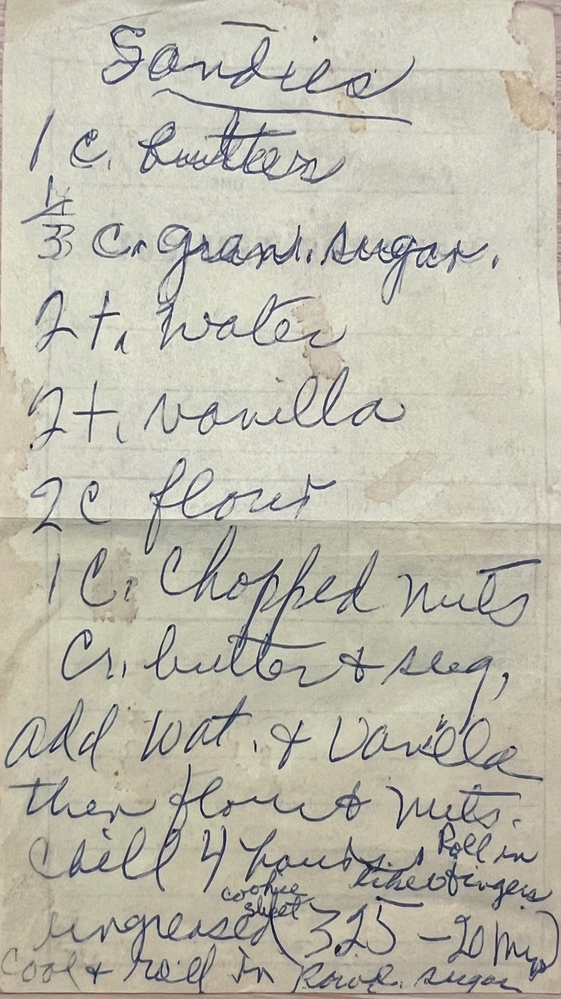 Sandies
1 c. butter
1/3 c. gran. sugar.
2 t. water
2 t. vanilla
2 c flour
1 c. chopped nuts
Cr. butter & sug,
add wat. & vanilla
then flour & nuts.
Chill 4 hours. Roll in
like fingers
cookie
sheet
ungreased (325 - 20 min)
Cool & roll in powd. sugar